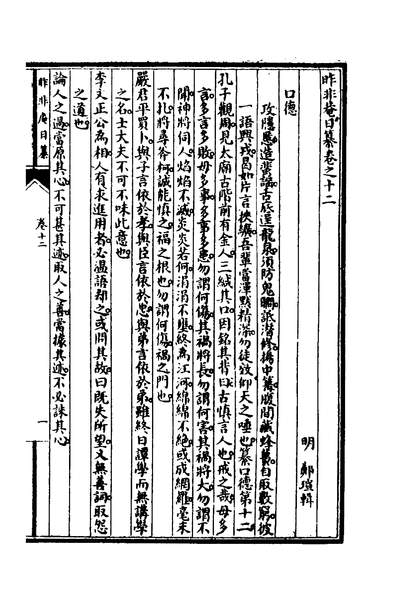 昨非庵日纂卷之十二
明 鄭瑄輯
口德
攻隱慝造蜚謡舌底逞龍泉須防鬼瞯詆潛修摘中冓腹間藏蜂蠆自取數窮彼
一語興戎曷如片言挾纊吾輩當渾默精深勿徒效仰天之唾也纂口德第十二
孔子觀周見太廟右階前有金人三緘其口因銘其背曰古慎言人也戒之哉毋多
言多言多敗毋多事多事多患勿謂何傷其禍將長勿謂何害其禍將大勿謂不
聞神將伺人焰焰不滅炎炎若何涓涓不壅終為江河綿綿不絕或成網羅毫末
不扎將尋斧柯誠能慎之福之根也勿謂何傷禍之門也
嚴君平買卜與子言依於孝與臣言依於忠與弟言依於弟雖終日譚學而無講學
之名士大夫不可不味此意也
李文正公為相人有求進用者必温語却之或問其故曰既失所望又無善詞取怨
之道也
論人之過當原其心不可甚其迹取人之善當據其迹不必誅其心
昨非庵日纂
卷十二
一